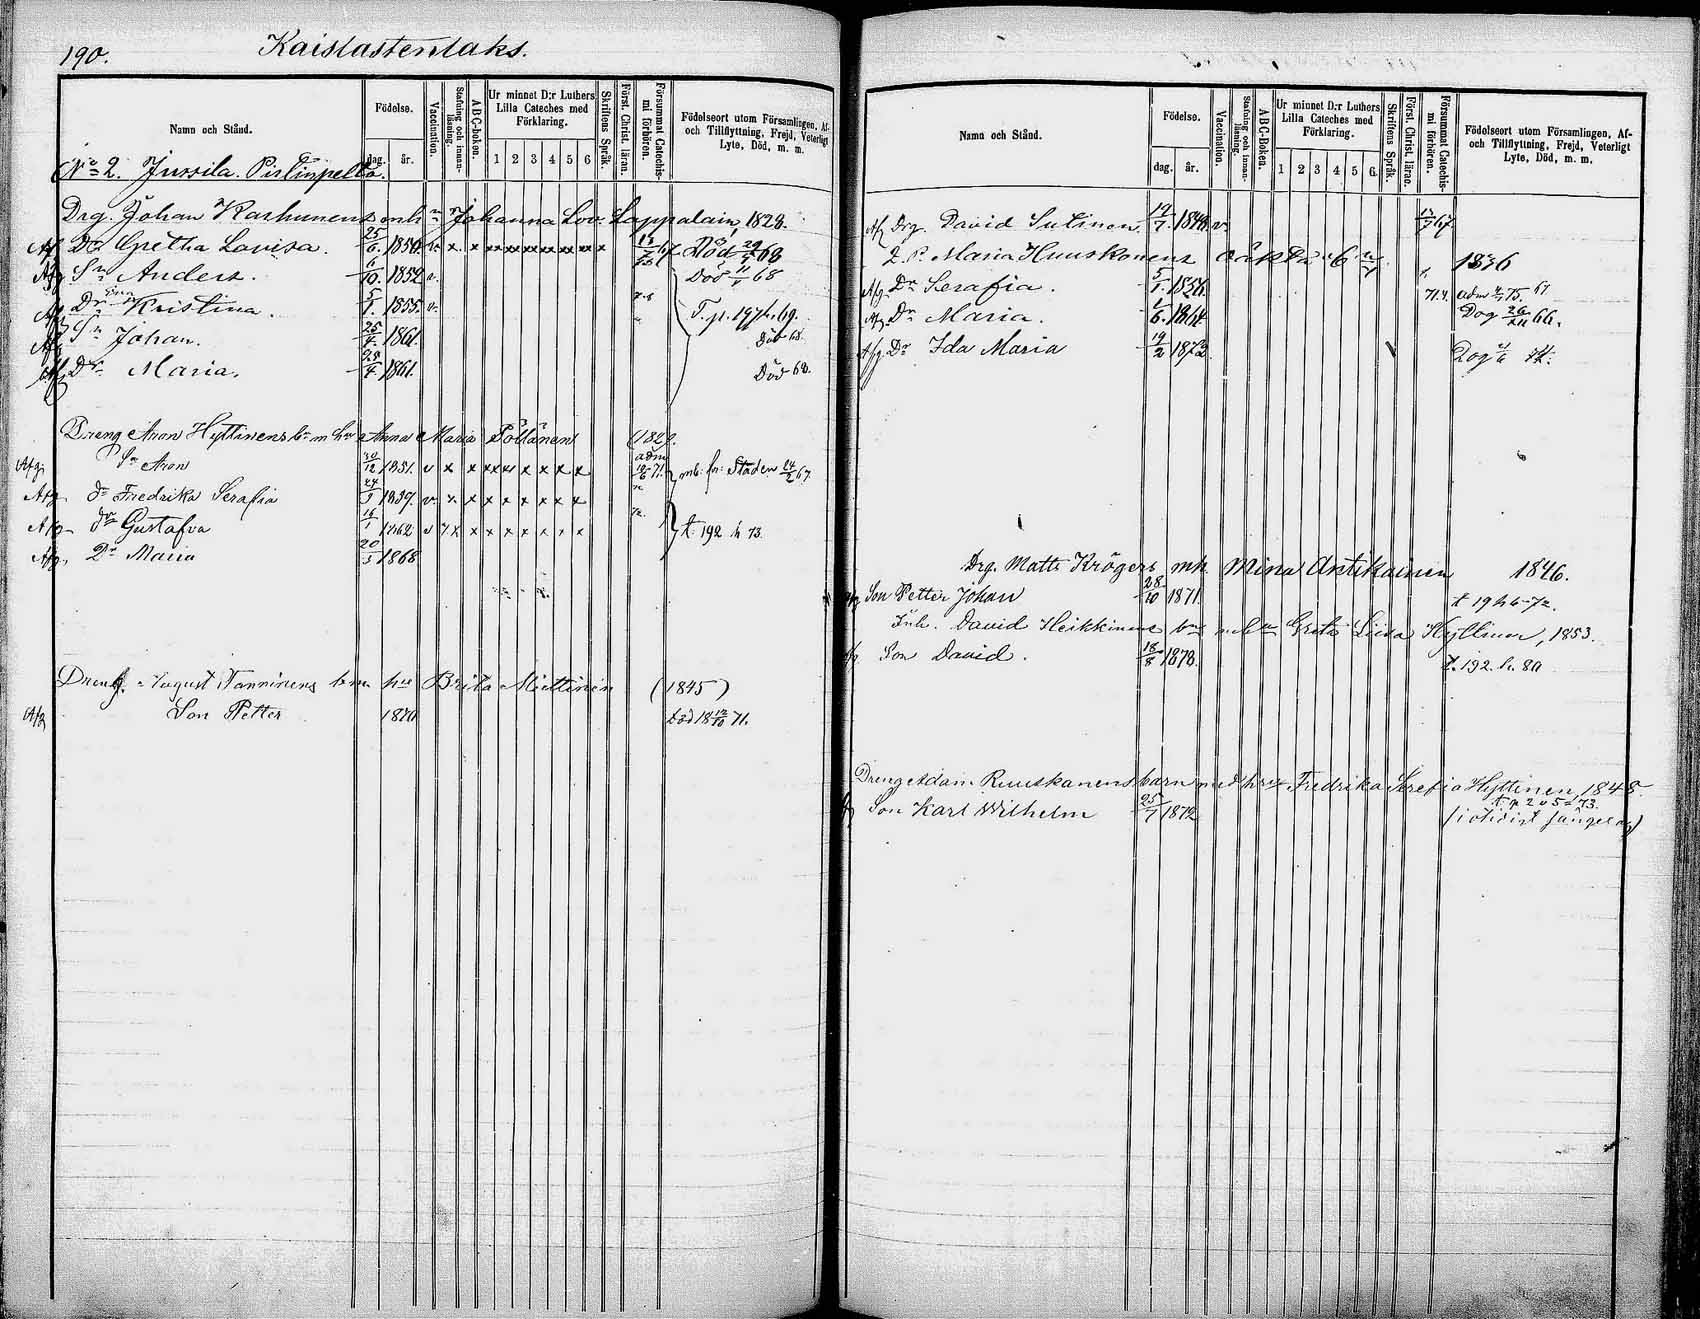 190. Kaislastenlaks.
Namn och Stånd.
Födelse.
dag. år.
Vaccination.
Stafning och innanläsning.
ABC-boken.
Ur minnet D:r Luthers Lilla Cateches med Förklaring.
1 2 3 4 5 6
Skriftens Språk.
Först. Christ. läran.
Försummat Catechismi förhören.
Födelseort utom Församlingen, Af- och Tillflyttning, Frejd, Veterligt Lyte, Död, m. m.
No 2. Jussila. Pirtinpelto.
Drg. Johan Karhunens mh Johanna Lov. Lappalain, 1828.
Afg Dr Gretha Lovisa. 25/6. 1850. v. x x x x x x x x x Död 68
Afg Sn Anders. 6/10. 1852 v. Död 11/1 68
Afg Dr Kristina. 5/1. 1855. v. T. p. 197 h. 69.
Afg Sn Johan. 25/4. 1861. Död 68.
Afg Dr Maria. 28/4. 1861. Död 68.
Dreng Aron Hyttinens bn m hu Anna Maria Pöllänen (1829.
Afg Sn Aron 30/12 1851. v x x x x x x x x adm 71. mb. fr. Staden 24/2 67.
Afg dr Fredrika Serafia 24/3 1859. v. x x x x x x x x
Afg dr Gustafva 16/1 1862 v x x x x x x x x t. 192 h 73.
Afg. Dr Maria 20/3 1868
Dreng. August Tanninens b m hu Brita Miettinen (1845)
Afg Son Petter 1870 Död 18 12/10 71.
Namn och Stånd.
Födelse.
dag. år.
Vaccination.
Stafning och innanläsning.
ABC-Boken.
Ur minnet D:r Luthers Lilla Cateches med Förklaring.
1 2 3 4 5 6.
Skriftens Språk.
Först. Christ. lärae.
Försummat Catechismi förhören.
Födelseort utom Församlingen, Af- och Tillflyttning, Frejd, Veterligt Lyte, Död, m. m.
Afg Drg. David Sutinen. 1848. v. 67.
Maria Huuskonens oäkta 1836
Afg. Dr Serafia. 5/1. 1856. adm 75.
Afg. Dr Maria. 1/6. 1864. Dog 66.
Afg. Dr Ida Maria 19/2 1873. Dog 74.
Drg. Matts Krögers mh. Mina Antikainen 1846.
Afg Son Petter Johan 28/10 1871. t 194 h 72.
Inh. David Heikkinens bn m hu Greta Liisa Hyttinen, 1853.
Afg Son David. 18/8 1878. t. 192. h. 80
Dreng Adam Ruuskanens barn med hru Fredrika Serefia Hyttinen, 1848.
Afg Son Karl Wilhelm 25/7 1872